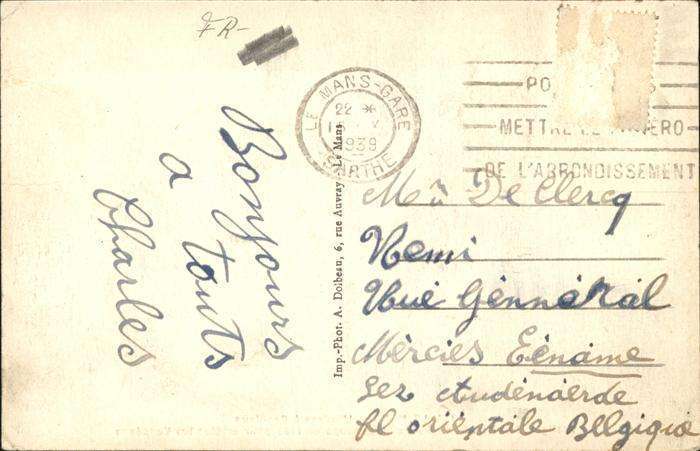 FR-
Bonjours
a touts
Charles
LE MANS-GARE
22
1939
SARTHE
METTRE LE NUMERO
DE L'ARRONDISSEMENT
Imp.-Phot. A. Dolbeau, 6, rue Auvray, Le Mans
De Clercq
Remi
Gènnéral
Mèrciés Eename
Lez Audenaerde
fl oriéntale Bélgique